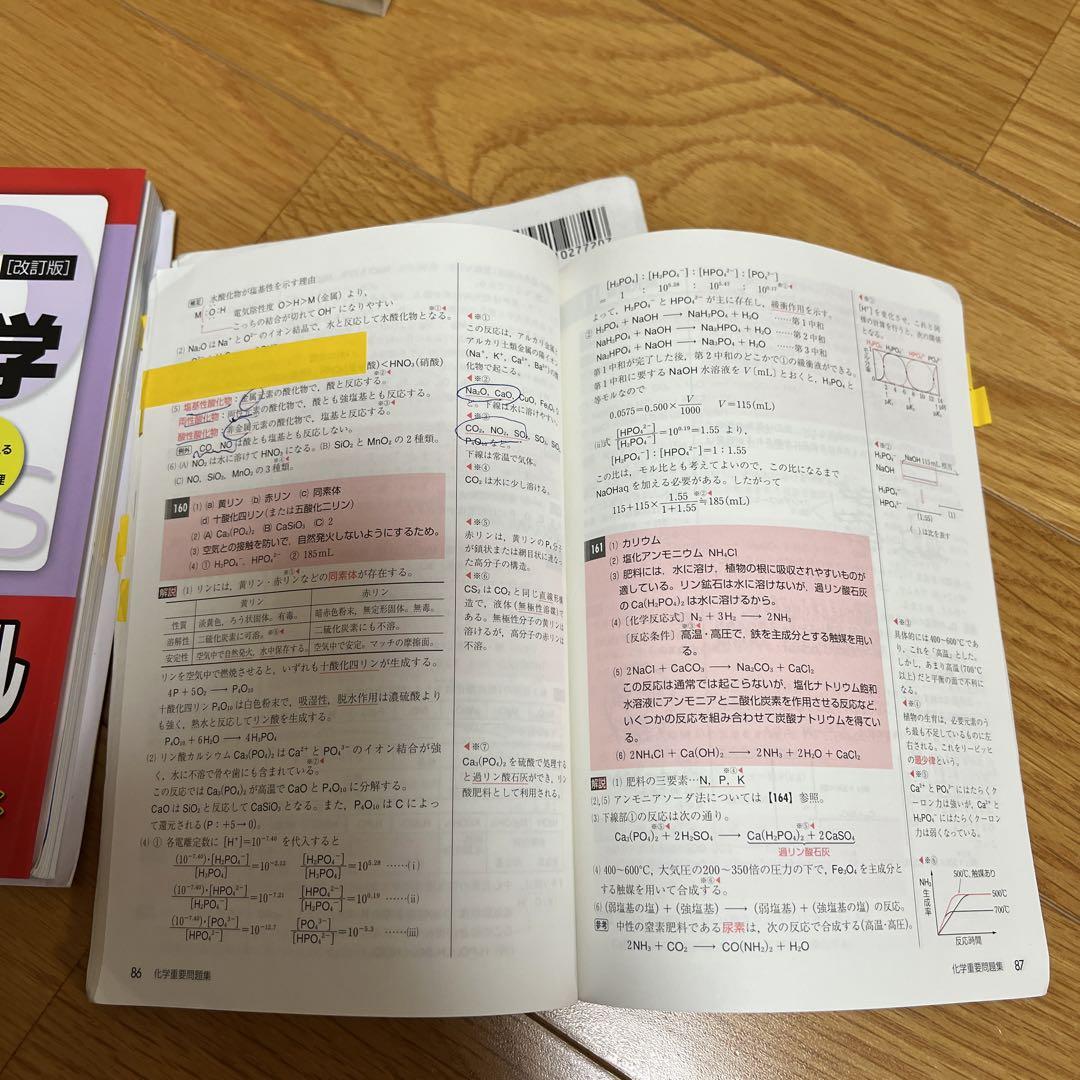 [改訂版]
学
10277207
補足 水酸化物が塩基性を示す理由
M:O:H 電気陰性度 O>H>M(金属)より、
こっちの結合が切れてOH⁻になりやすい
(2) Na₂OはNa⁺とO²⁻のイオン結晶で、水と反応して水酸化物となる。
酸)<HNO₃(硝酸)
(5) 塩基性酸化物:金属元素の酸化物で、酸と反応する。
両性酸化物:両性元素の酸化物で、酸とも強塩基とも反応する。
酸性酸化物:非金属元素の酸化物で、塩基と反応する。
例外 CO、NOは酸とも塩基とも反応しない。
(6) (A) NO₂は水に溶けてHNO₃になる。(B) SiO₂とMnO₂の2種類。
(C) NO、SiO₂、MnO₂の3種類。
160 (1) (a) 黄リン (b) 赤リン (c) 同素体
(d) 十酸化四リン(または五酸化二リン)
(2) (A) Ca₃(PO₄)₂ (B) CaSiO₃ (C) 2
(3) 空気との接触を防いで、自然発火しないようにするため。
(4) ① H₂PO₄⁻、HPO₄²⁻ ② 185mL
解説 (1) リンには、黄リン・赤リンなどの同素体が存在する。
黄リン 赤リン
性質 淡黄色、ろう状固体。有毒。 暗赤色粉末、無定形固体。無毒。
溶解性 二硫化炭素に可溶。※⑥ 二硫化炭素にも不溶。
安定性 空気中で自然発火、水中保存する。 空気中で安定。マッチの摩擦面。
リンを空気中で燃焼させると、いずれも十酸化四リンが生成する。
4P + 5O₂ → P₄O₁₀
十酸化四リンP₄O₁₀は白色粉末で、吸湿性、脱水作用は濃硫酸より
も強く、熱水と反応してリン酸を生成する。
P₄O₁₀ + 6H₂O → 4H₃PO₄
(2) リン酸カルシウムCa₃(PO₄)₂はCa²⁺とPO₄³⁻のイオン結合が強
く、水に不溶で骨や歯にも含まれている。※⑦
この反応ではCa₃(PO₄)₂が高温でCaOとP₄O₁₀に分解する。
CaOはSiO₂と反応してCaSiO₃となる。また、P₄O₁₀はCによっ
て還元される(P:+5→0)。
(4) ① 各電離定数に[H⁺]=10⁻⁷·⁴⁰を代入すると
(10⁻⁷·⁴⁰)・[H₂PO₄⁻]/[H₃PO₄]=10⁻²·¹² [H₂PO₄⁻]/[H₃PO₄]=10⁵·²⁸ ……(i)
(10⁻⁷·⁴⁰)・[HPO₄²⁻]/[H₂PO₄⁻]=10⁻⁷·²¹ [HPO₄²⁻]/[H₂PO₄⁻]=10⁰·¹⁹ ……(ii)
(10⁻⁷·⁴⁰)・[PO₄³⁻]/[HPO₄²⁻]=10⁻¹²·⁷ [PO₄³⁻]/[HPO₄²⁻]=10⁻⁵·³ ……(iii)
86 化学重要問題集
◀※①
この反応は、アルカリ金属と
アルカリ土類金属の陽イオン
(Na⁺, K⁺, Ca²⁺, Ba²⁺)の
化物で起こる。
◀※②
Na₂O, CaO, CuO, Fe₂O₃
ど。下線は水に溶けやすい。
◀※③
CO₂, NO₂, SO₂, SO₃, SiO₂
P₄O₁₀など。
下線は常温で気体。
◀※④
CO₂は水に少し溶ける。
◀※⑤
赤リンは、黄リンのP₄分子
が鎖状または網目状に連なっ
た高分子の構造。
◀※⑥
CS₂はCO₂と同じ直線形構
造で、液体(無極性溶媒)で
ある。無極性分子の黄リンは
溶けるが、高分子の赤リンは
不溶。
◀※⑦
Ca₃(PO₄)₂を硫酸で処理する
と過リン酸石灰ができ、リン
酸肥料として利用される。
[H₃PO₄]:[H₂PO₄⁻]:[HPO₄²⁻]:[PO₄³⁻]
= 1 : 10⁵·²⁸ : 10⁵·⁴⁷ : 10⁰·¹⁷
よって、H₂PO₄⁻とHPO₄²⁻が主に存在し、緩衝作用を示す。
② H₃PO₄ + NaOH → NaH₂PO₄ + H₂O ……第1中和
NaH₂PO₄ + NaOH → Na₂HPO₄ + H₂O ……第2中和
Na₂HPO₄ + NaOH → Na₃PO₄ + H₂O ……第3中和
第1中和が完了した後、第2中和のどこかで①の緩衝液ができる。
第1中和に要するNaOH水溶液をV〔mL〕とおくと、H₃PO₄と
等モルなので
0.0575=0.500×V/1000 V=115(mL)
(ii)式 [HPO₄²⁻]/[H₂PO₄⁻]=10⁰·¹⁹=1.55 より、
[H₂PO₄⁻]:[HPO₄²⁻]=1:1.55
この比は、モル比とも考えてよいので、この比になるまで
NaOHaqを加える必要がある。したがって
115+115×1.55/(1+1.55)≒185(mL)
161 (1) カリウム
(2) 塩化アンモニウム NH₄Cl
(3) 肥料には、水に溶け、植物の根に吸収されやすいものが
適している。リン鉱石は水に溶けないが、過リン酸石灰
のCa(H₂PO₄)₂は水に溶けるから。
(4) 〔化学反応式〕 N₂ + 3H₂ → 2NH₃
〔反応条件〕 高温・高圧で、鉄を主成分とする触媒を用い
る。
(5) 2NaCl + CaCO₃ → Na₂CO₃ + CaCl₂
この反応は通常では起こらないが、塩化ナトリウム飽和
水溶液にアンモニアと二酸化炭素を作用させる反応など、
いくつかの反応を組み合わせて炭酸ナトリウムを得てい
る。
(6) 2NH₄Cl + Ca(OH)₂ → 2NH₃ + 2H₂O + CaCl₂
解説 (1) 肥料の三要素…N, P, K
(2),(5) アンモニアソーダ法については【164】参照。
(3) 下線部①の反応は次の通り。
Ca₃(PO₄)₂ + 2H₂SO₄ → Ca(H₂PO₄)₂ + 2CaSO₄
過リン酸石灰
(4) 400~600℃、大気圧の200~350倍の圧力の下で、Fe₃O₄を主成分と
する触媒を用いて合成する。
(6) (弱塩基の塩)+(強塩基) → (弱塩基)+(強塩基の塩)の反応。
参考 中性の窒素肥料である尿素は、次の反応で合成する(高温・高圧)。
2NH₃ + CO₂ → CO(NH₂)₂ + H₂O
化学重要問題集 87
[H⁺]を変化させ、これと同
様の計算を行うと、次の関係
となる。
H₃PO₄ H₂PO₄⁻ HPO₄²⁻ PO₄³⁻
◀※②
NaOH 115mL
H₃PO₄
NaOH
H₂PO₄⁻
HPO₄²⁻
(1.55) (1)
( )は比を表す
◀※③
具体的には400~600℃であ
り、これを「高温」とした。
しかし、あまり高温(700℃
以上)だと平衡の面で不利に
なる。
◀※④
植物の生育は、必要元素のう
ち最も不足しているものに左
右される。これをリービッヒ
の最少律という。
◀※⑤
Ca²⁺とPO₄³⁻にはたらくク
ーロン力は強いが、Ca²⁺と
H₂PO₄⁻にはたらくクーロン
力は弱くなっている。
◀※⑥
NH₃生成率
500℃、触媒あり
500℃
700℃
反応時間